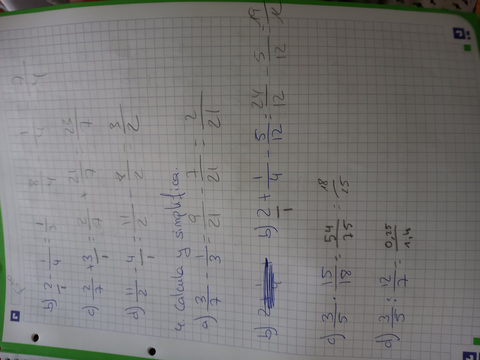 b) 2/1 - 1/4 = 8/4 - 1/4 = 7/4
c) 2/7 + 3/1 = 2/7 + 21/7 = 23/7
d) 11/2 - 4/1 = 11/2 - 8/2 = 3/2
4. Calcula y simplifica.
a) 3/7 - 1/3 = 9/21 - 7/21 = 2/21
b) 2/1 + 1/4 - 5/12 = 24/12 - 5/12 = 19/12
c) 3/5 · 15/18 = 54/75 = 18/25
d) 3/5 : 12/7 = 0,25/1,4